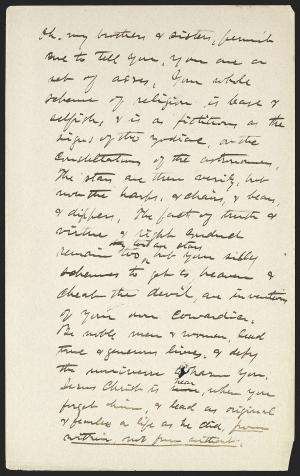 Oh, my brothers & sisters, permit
me to tell you, you are a
set of asses. Your whole
scheme of religion is base &
selfish, & is as fictitious as the
signs of the zodiac, or the
constellations of the astronomers.
The stars are there verily, but
not the harps, & chairs, & bears,
& dippers. The fact of truth &
virtue & right conduct
as stars
remain too, but your silly
schemes to get to heaven &
cheat the devil, are inventions
of your own cowardice.
The noble men & women, lead
true & generous lives, & defy
the universe to harm you.
Jesus Christ is near, when you
forget him, & lead as original
& fearless a life as he did, from
within, not from without.